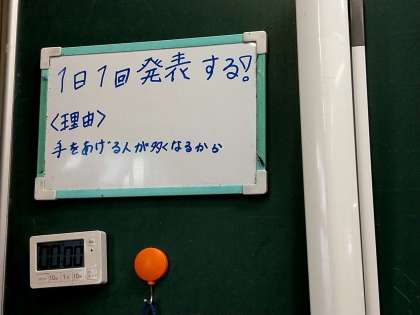 1日1回発表する!
〈理由〉
手をあげる人が多くなるから
00:00